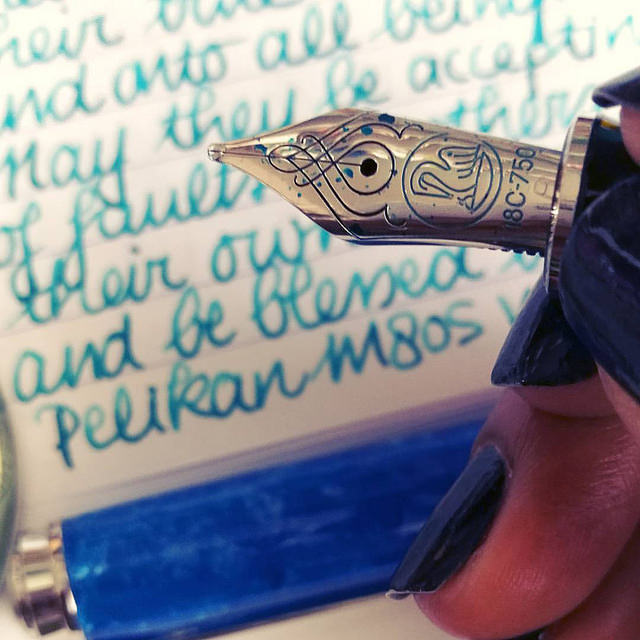 their
and onto all being
may they be accepting
of faults others
their own
and be blessed
Pelikan M805
18C-750